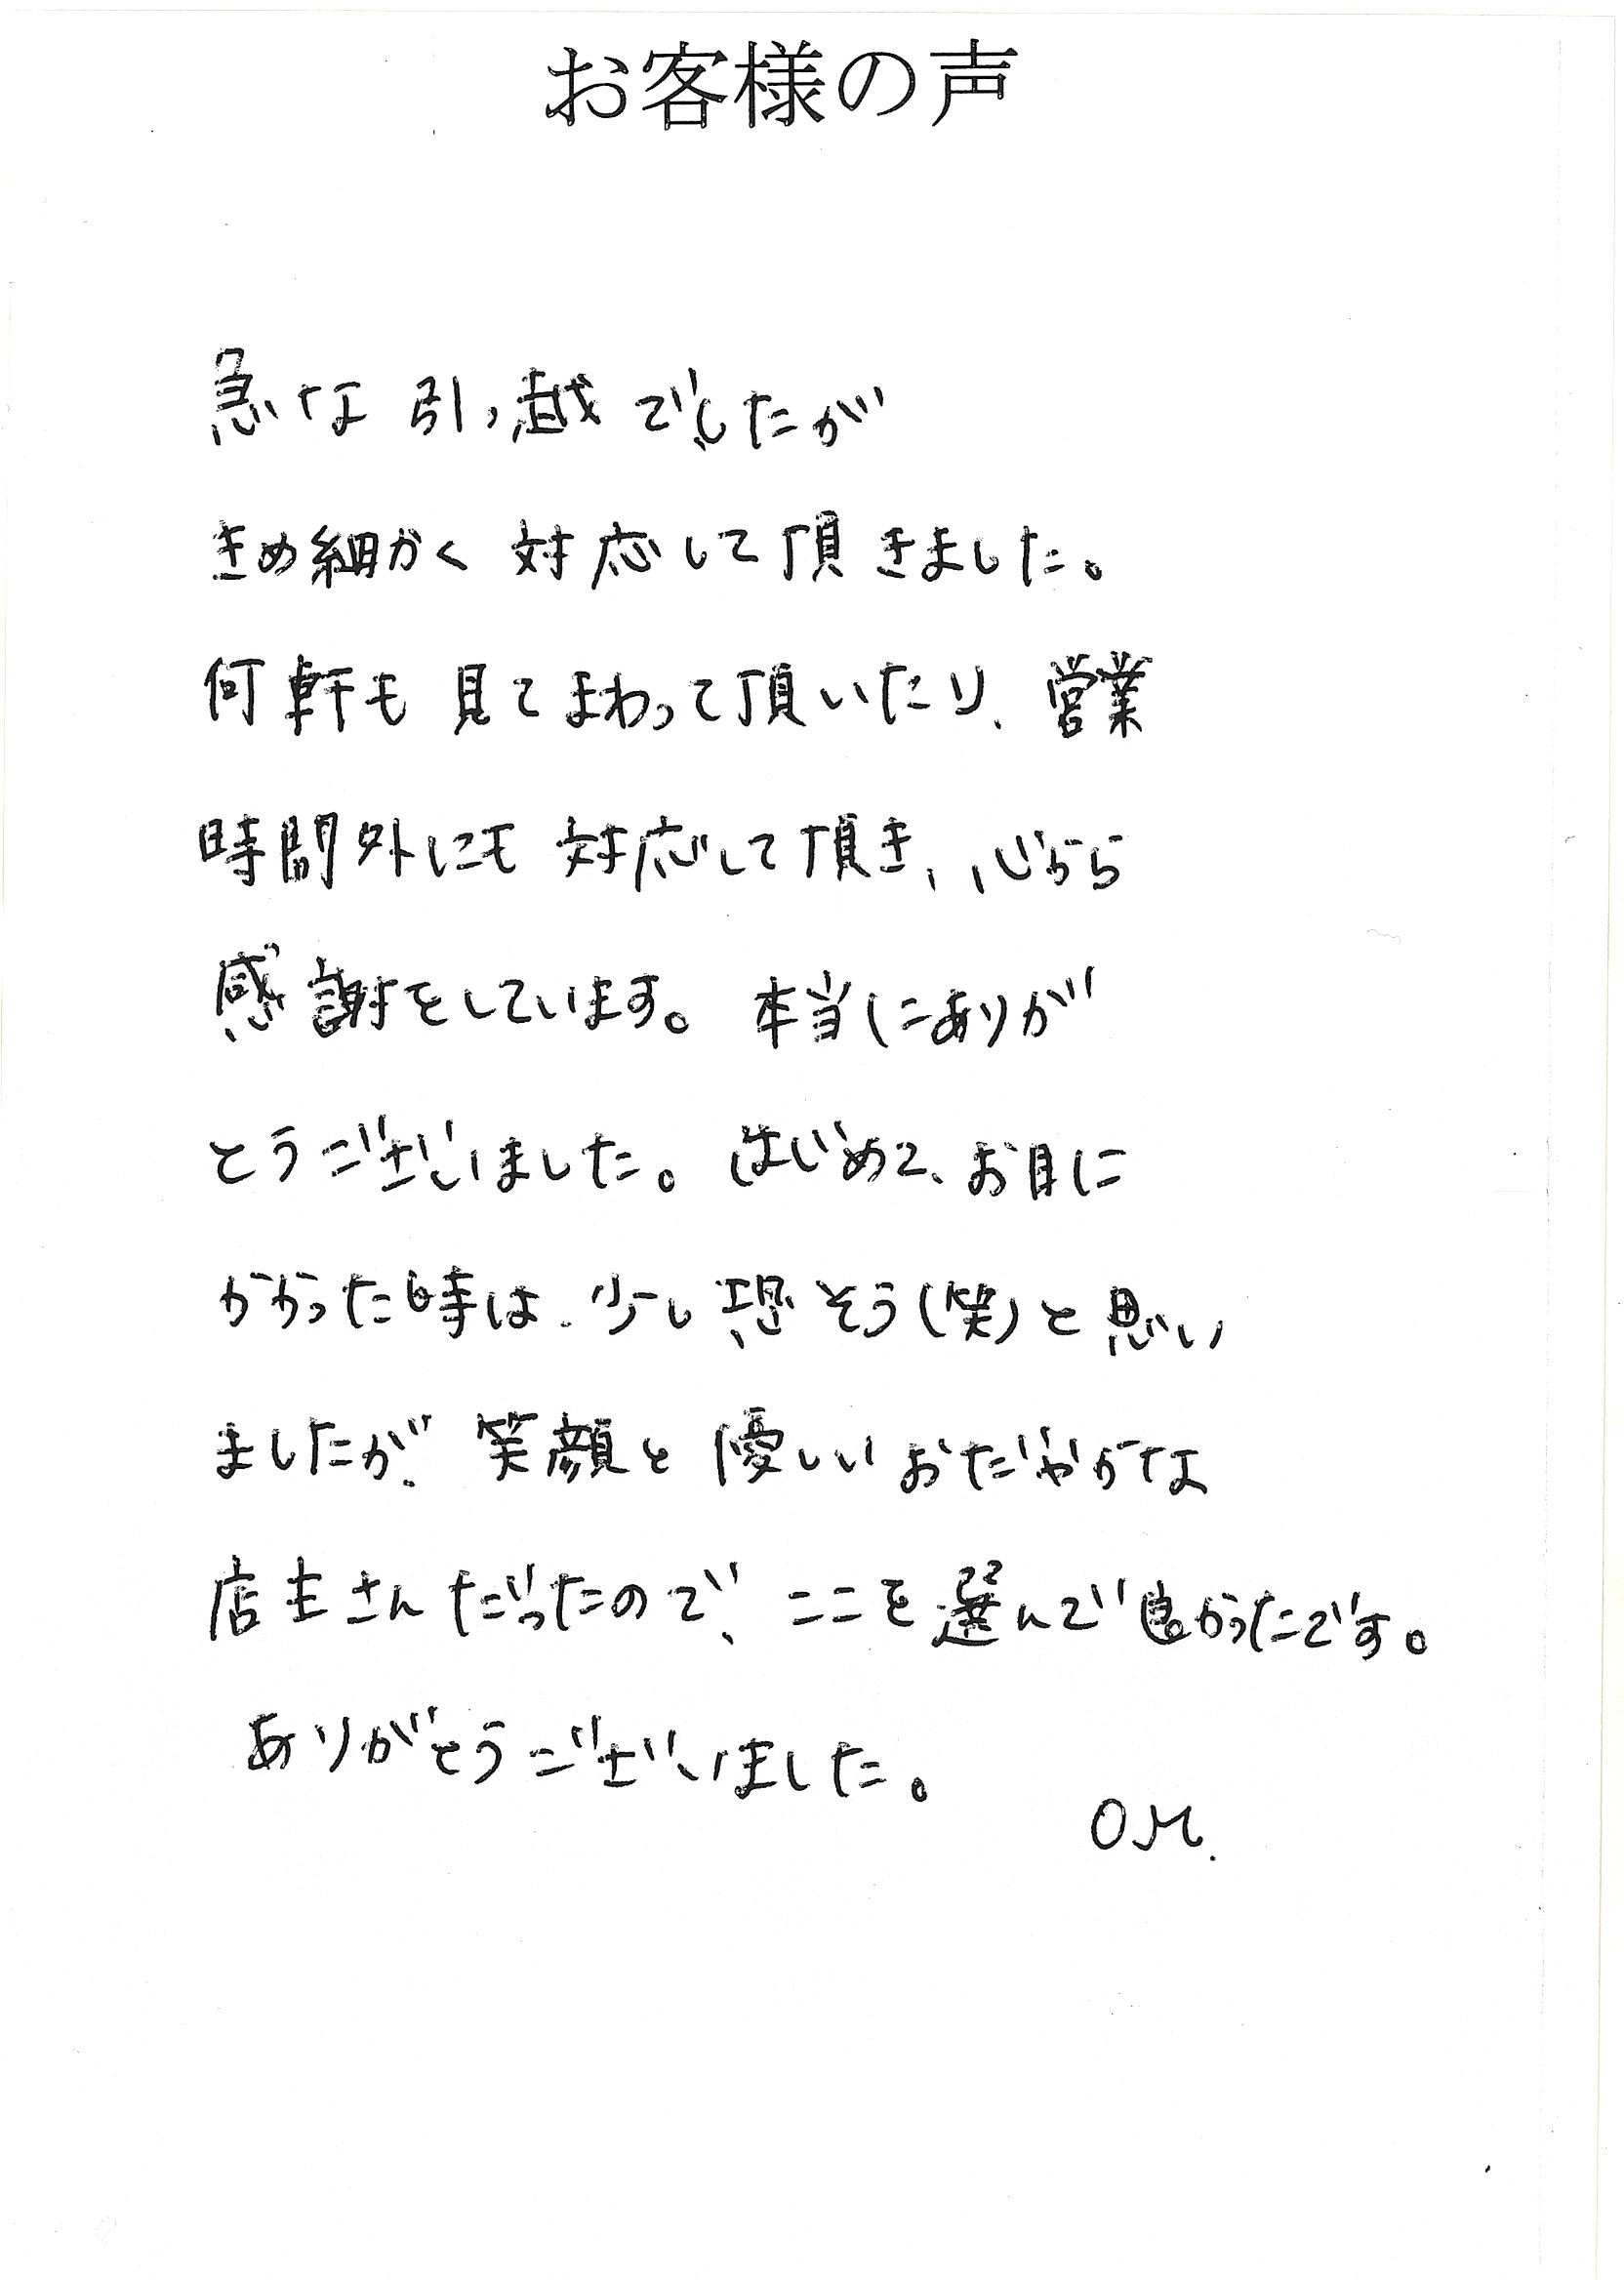 お客様の声
急な引っ越でしたが
きめ細かく対応して頂きました。
何軒も見てまわって頂いたり、営業
時間外にも対応して頂き、心から
感謝をしています。本当にありが
とうございました。はじめて、お目に
かかった時は、少し恐そう(笑)と思い
ましたが、笑顔と優しいおだやかな
店主さんだったので、ここを選んで良かったです。
ありがとうございました。
O.M.